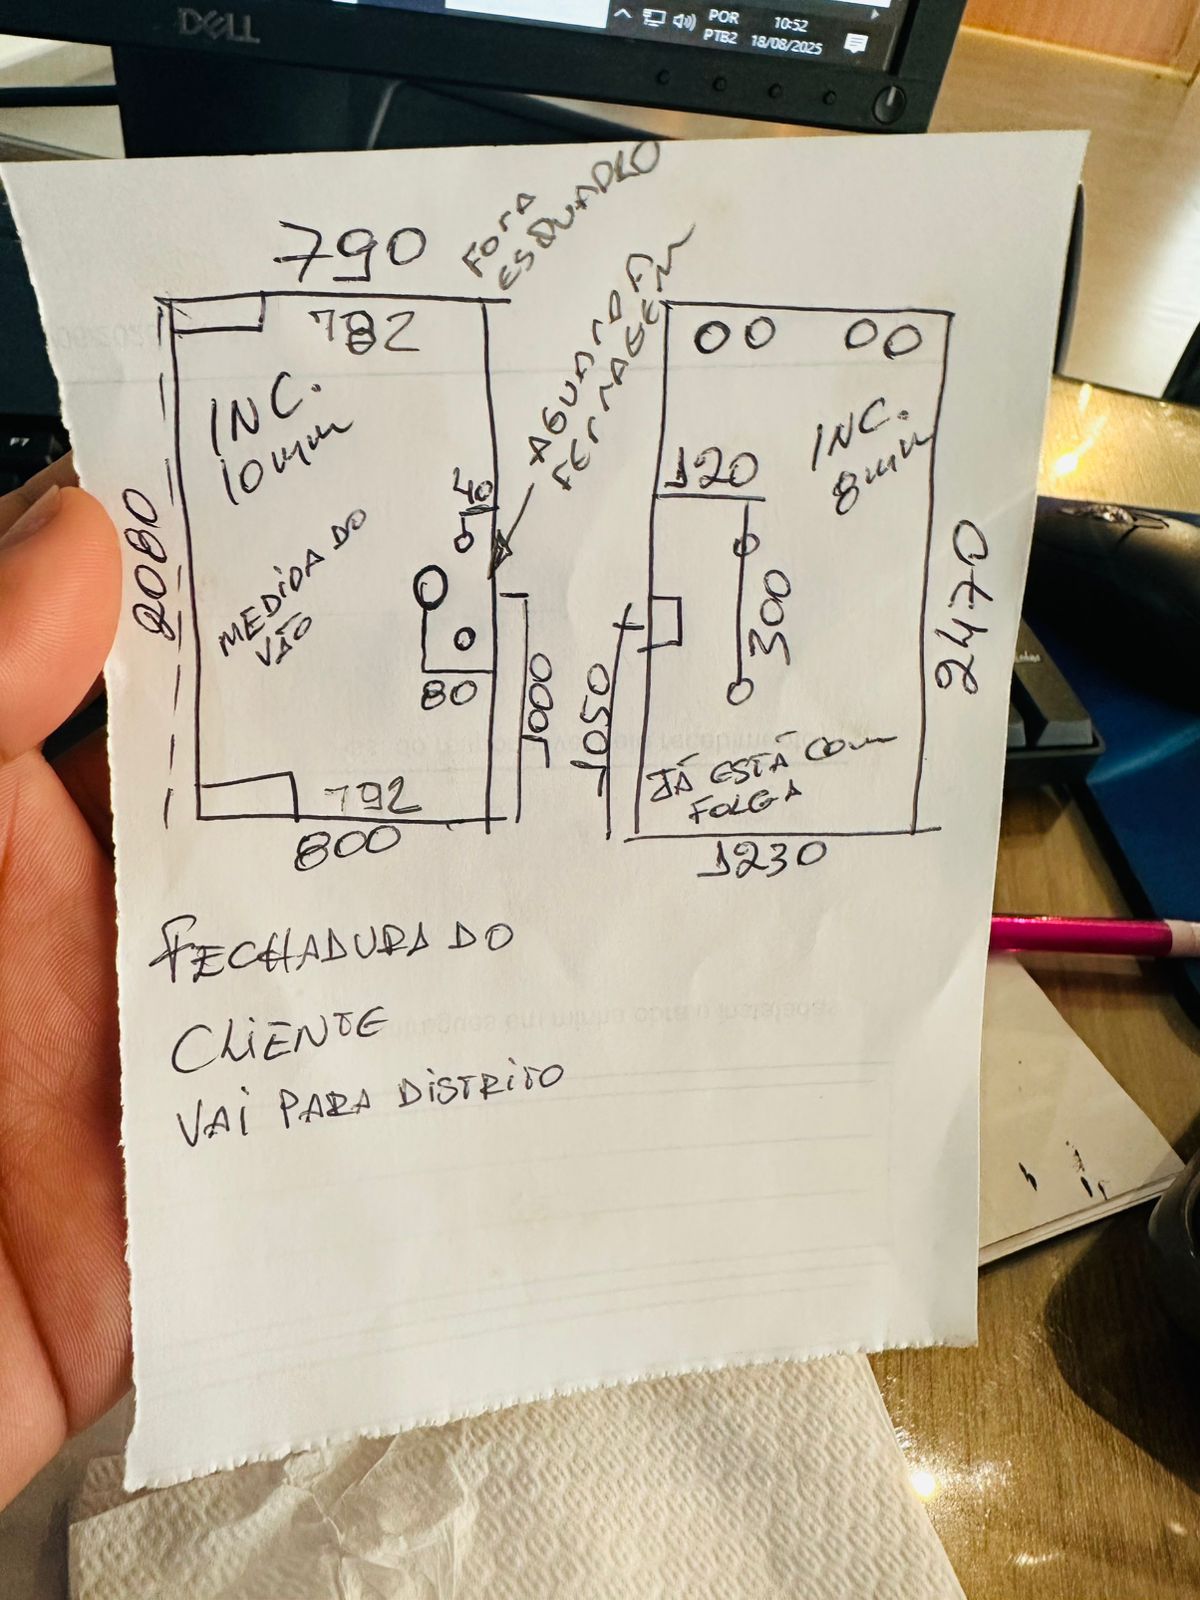 DELL
POR
PTB2
10:52
18/08/2025
F7
790
FORA
ESQUADRO
782
INC.
10mm
2080
MEDIDA DO
VÃO
40
80
1000
792
800
AGUARDA
FERRAGEM
INC.
8mm
120
300
2470
1050
JÁ ESTÁ COM
FOLGA
1230
FECHADURA DO
CLIENTE
VAI PARA DISTRITO